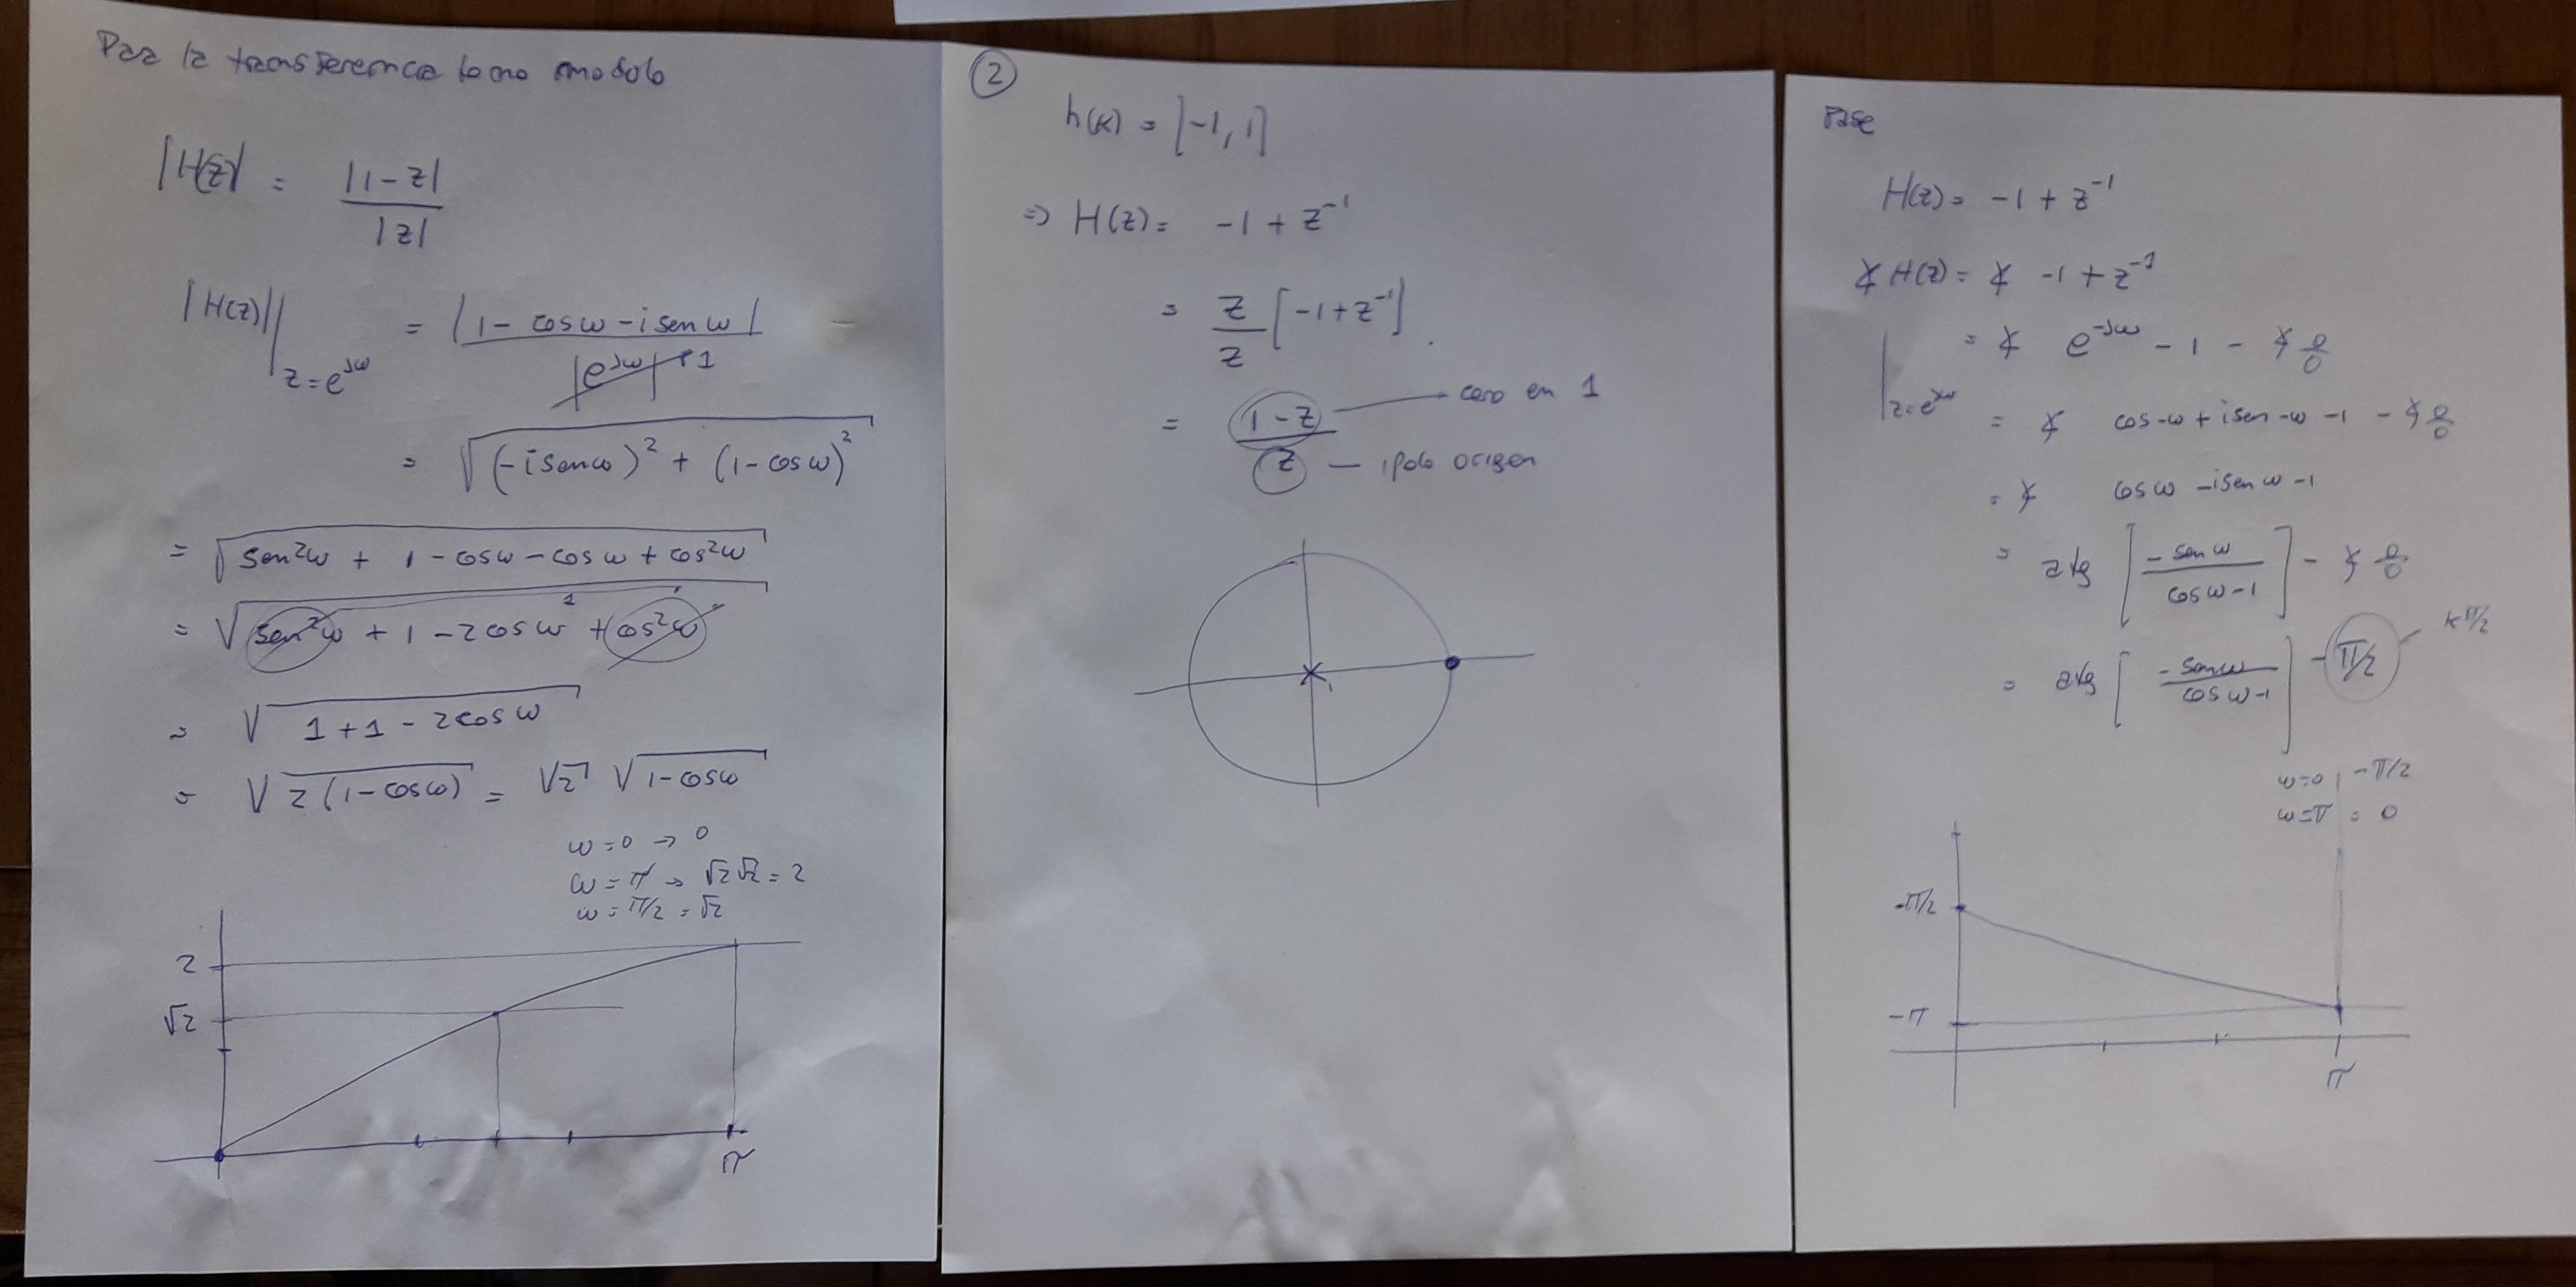 Para la transferencia tomo modulo
|H(z)| = |1-z| / |z|
|H(z)| |z=e^jω = |1 - cosω - i senω| / |e^jω| 1
= √((-i senω)² + (1-cosω)²)
= √(sen²ω + 1 - cosω - cosω + cos²ω)
= √(sen²ω + 1 - 2cosω + cos²ω) 1
= √(1+1-2cosω)
= √(2(1-cosω)) = √2 √(1-cosω)
ω=0 → 0
ω=π → √2√2 = 2
ω=π/2 = √2
2
√2
π
2
h(k) = [-1, 1]
⇒ H(z) = -1 + z^-1
= z/z [-1+z^-1]
= (1-z) / z
cero en 1
1 polo origen
Fase
H(z) = -1 + z^-1
∡ H(z) = ∡ -1 + z^-1
|z=e^jω = ∡ e^-jω - 1 - ∡ 0/0
= ∡ cos-ω + i sen-ω - 1 - ∡ 0/0
= ∡ cosω - i senω - 1
= atg [-senω / (cosω-1)] - ∡ 0/0
= atg [-senω / (cosω-1)] - π/2
kπ/2
ω=0 | -π/2
ω=π = 0
-π/2
-π
π